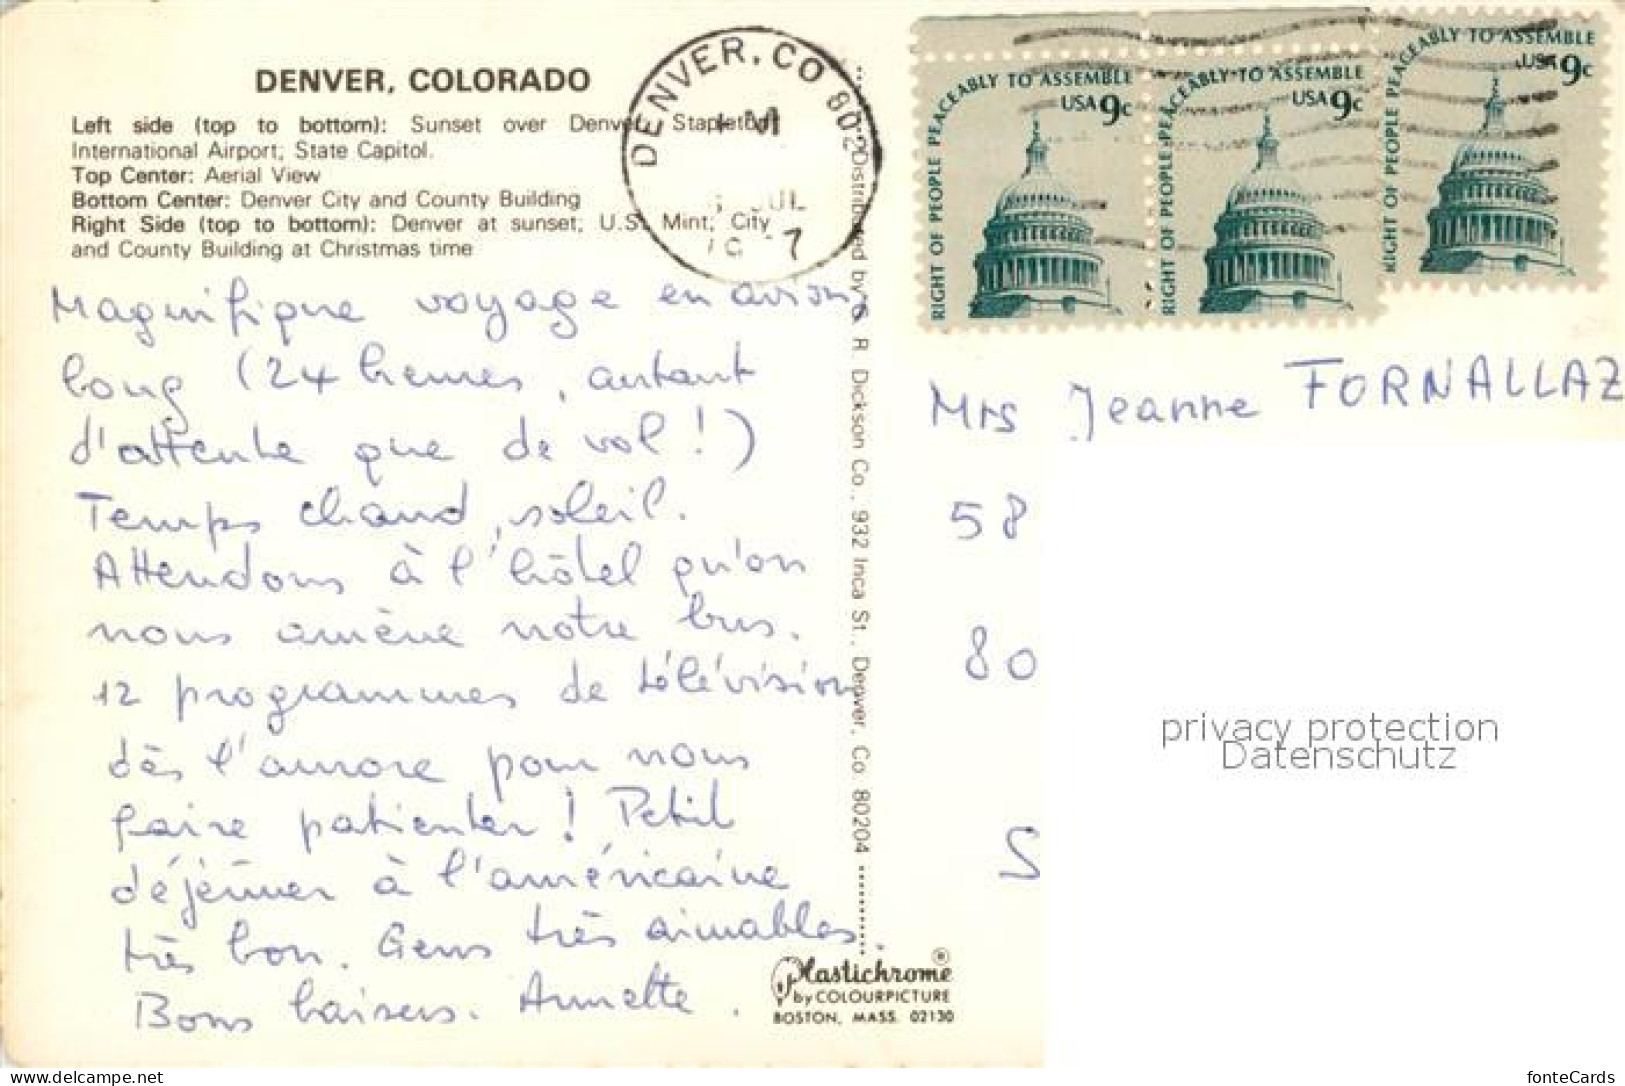 DENVER, COLORADO
Left side (top to bottom): Sunset over Denver Stapleton
International Airport; State Capitol.
Top Center: Aerial View
Bottom Center: Denver City and County Building
Right Side (top to bottom): Denver at sunset; U.S. Mint; City
and County Building at Christmas time
DENVER, CO 802
JUL
RIGHT OF PEOPLE PEACEABLY TO ASSEMBLE
USA 9c
RIGHT OF PEOPLE PEACEABLY TO ASSEMBLE
USA 9c
RIGHT OF PEOPLE PEACEABLY TO ASSEMBLE
USA 9c
Magnifique voyage en avion,
long (24 heures, autant
d'attente que de vol!)
Temps chaud, soleil.
Attendons à l'hôtel qu'on
nous amène notre bus.
12 programmes de télévision
dès l'aurore pour nous
faire patienter! Petit
déjeûner à l'américaine
très bon. Gens très aimables.
Bons baisers. Annette.
Distributed by R. Dickson Co., 932 Inca St., Denver, Co 80204
Mrs Jeanne FORNALLAZ
58
80
S
privacy protection
Datenschutz
Plastichrome ®
by COLOURPICTURE
BOSTON, MASS. 02130
www.delcampe.net
fonteCards